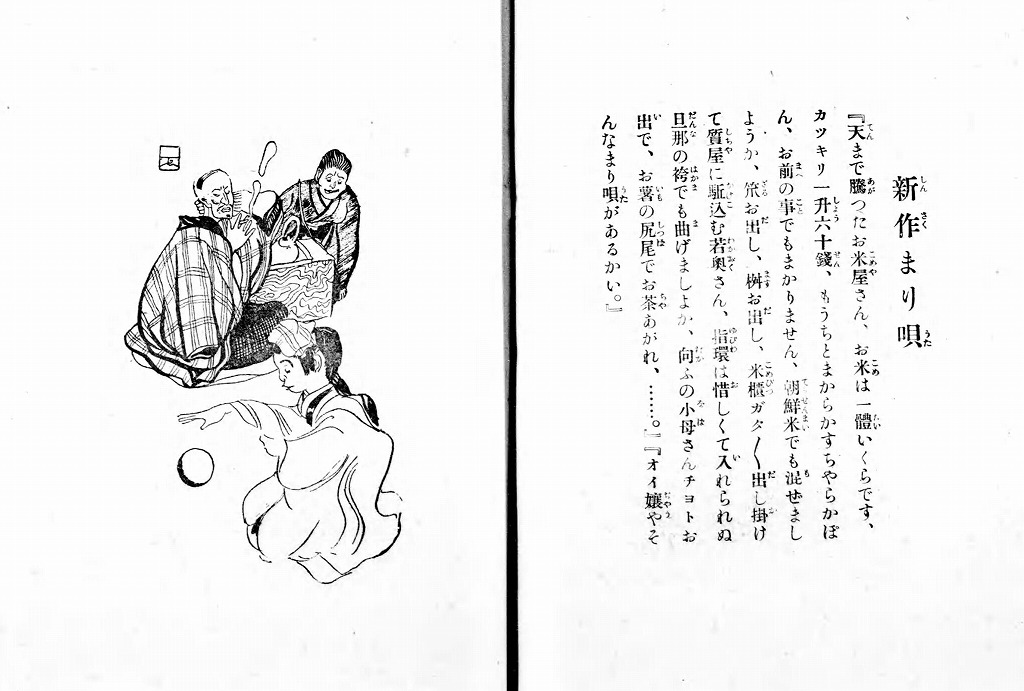 新作まり唄
『天まで騰つたお米屋さん、お米は一體いくらです、
カツキリ一升六十錢、もうちとまからかすちやらかぽ
ん、お前の事でもまかりません、朝鮮米でも混ぜまし
ようか、笊お出し、桝お出し、米櫃ガタ〱出し掛け
て質屋に駈込む若奥さん、指環は惜しくて入れられぬ
旦那の袴でも曲げましよか、向ふの小母さんチヨトお
出で、お薯の尻尾でお茶あがれ、……。』『オイ孃やそ
んなまり唄があるかい。』